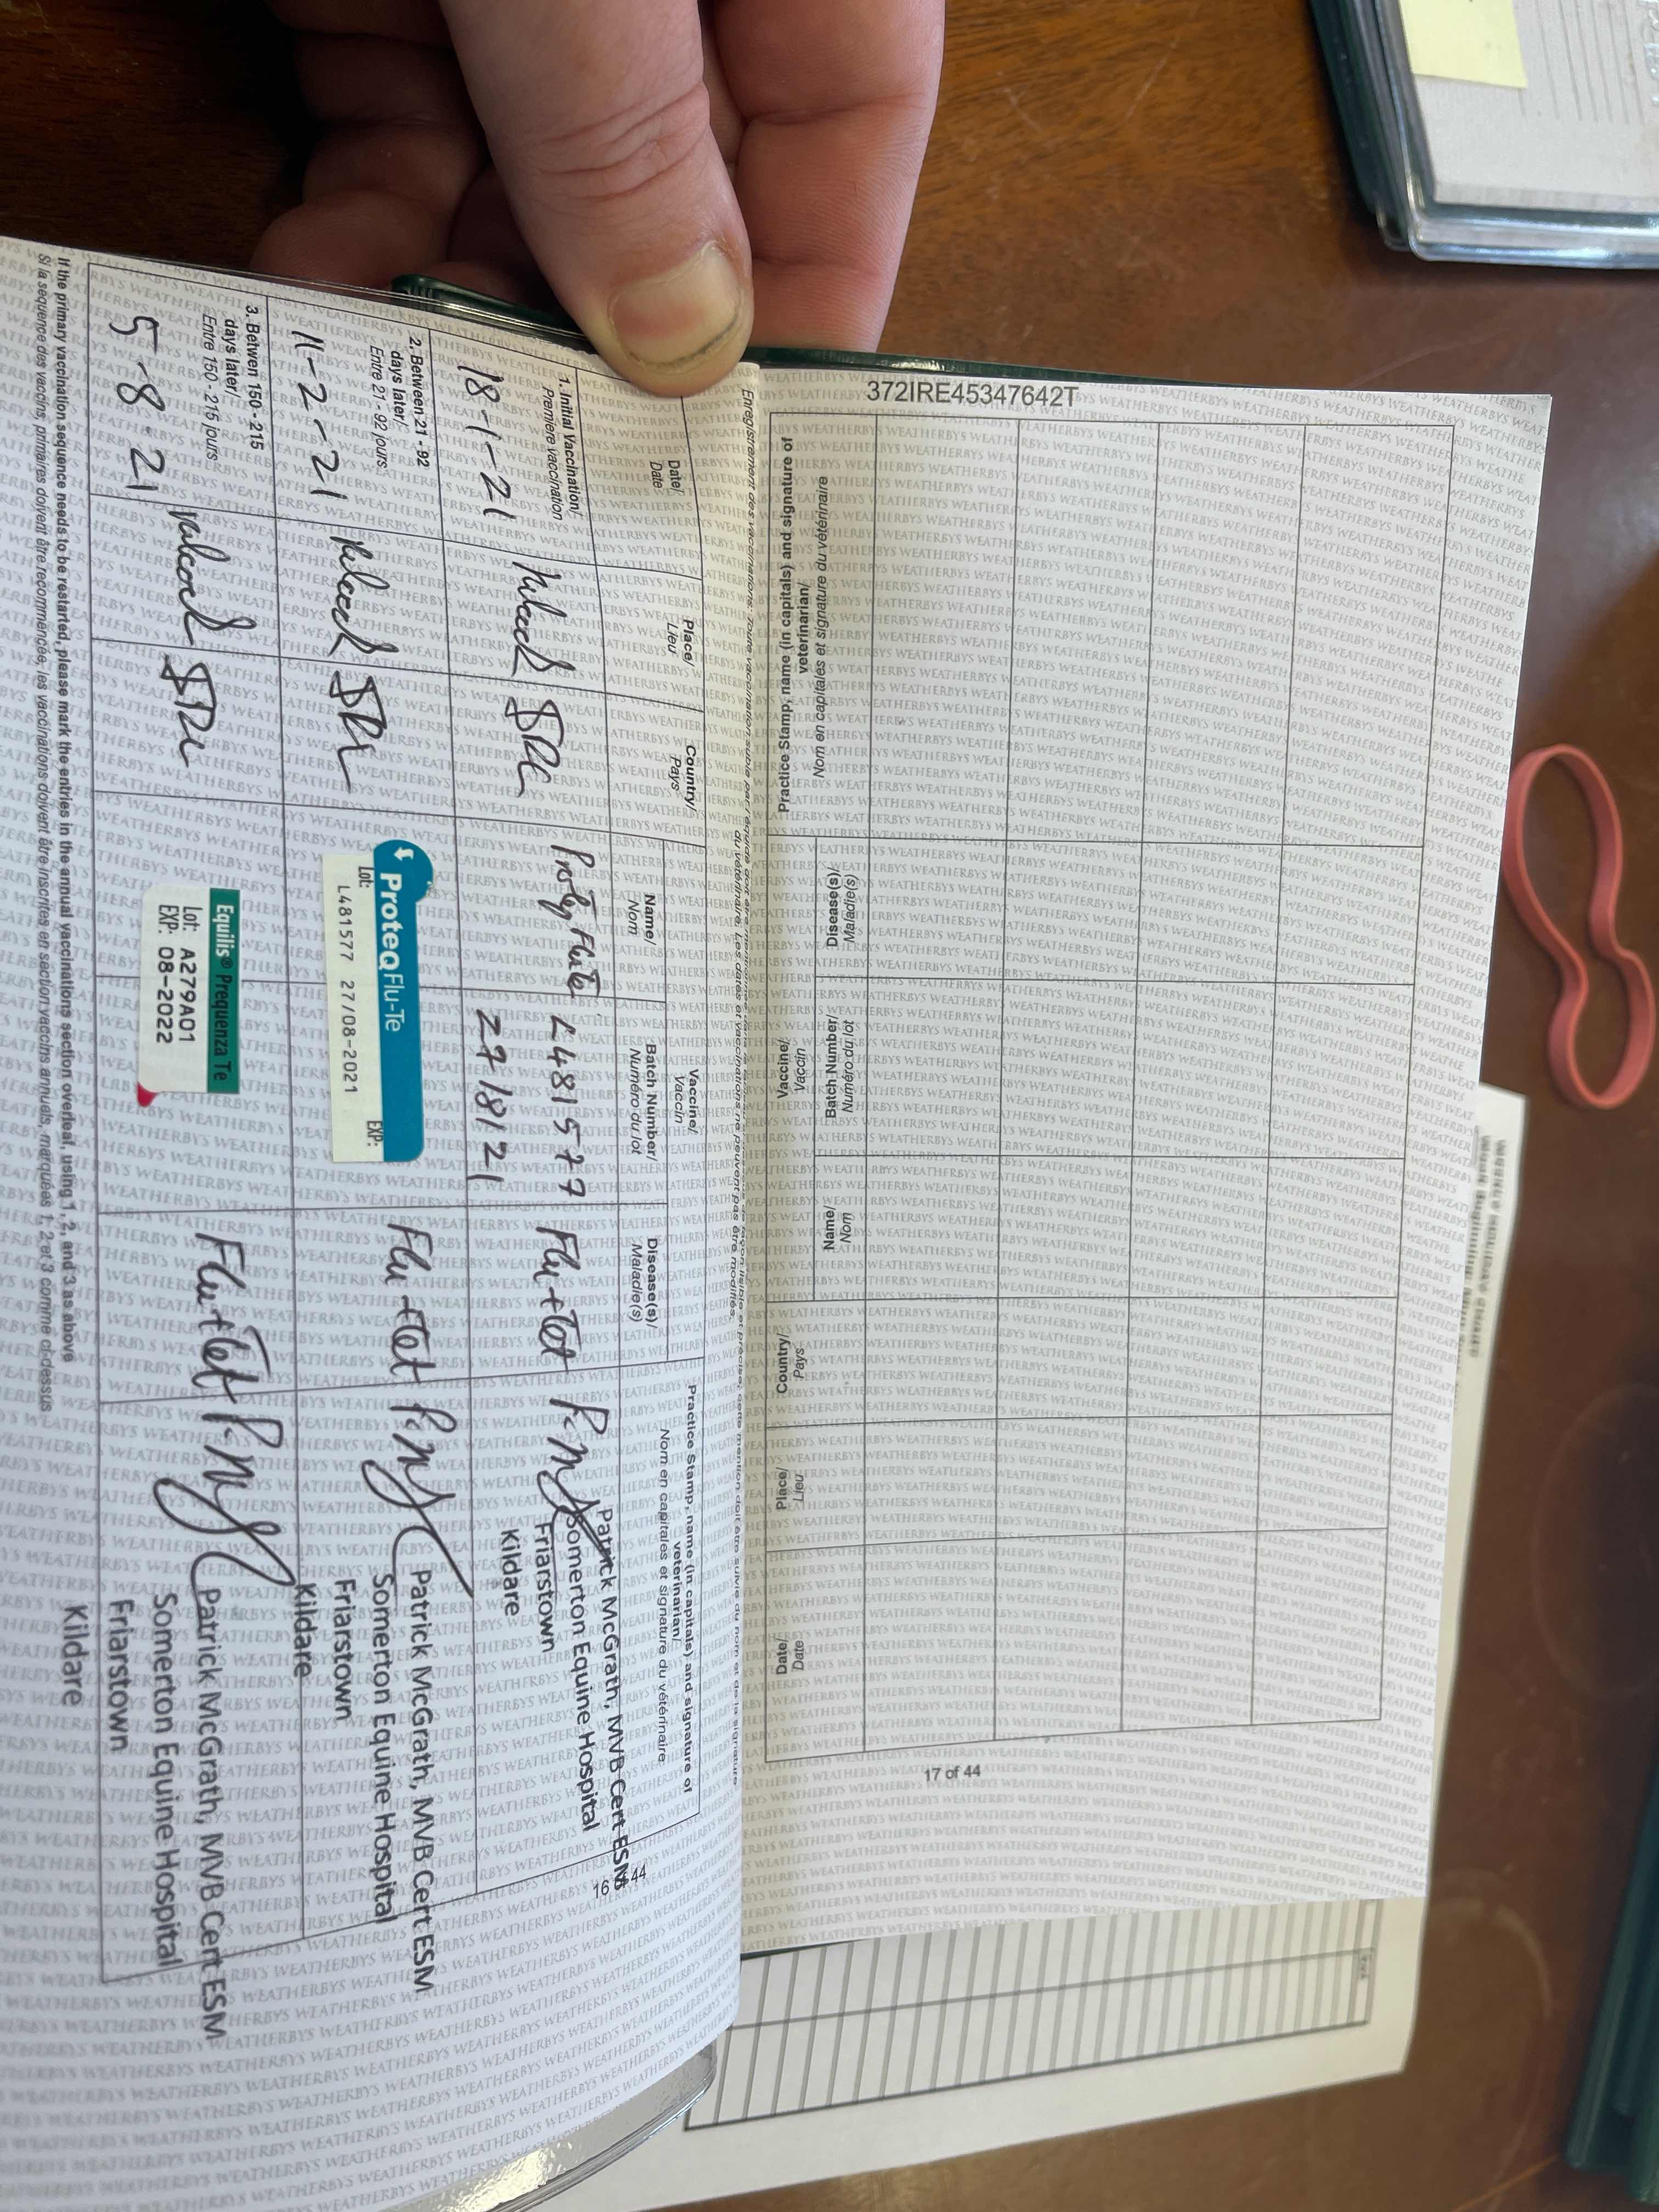 372IRE45347642T
Practice Stamp, name (in capitals) and signature of
veterinarian/
Nom en capitales et signature du vétérinaire
Disease(s)/
Maladie(s)
Vaccine/
Vaccin
Batch Number/
Numéro du lot
Name/
Nom
Country/
Pays
Place/
Lieu
Date/
Date
17 of 44
Enregistrement des vaccinations:
du vétérinaire. Les dates et vaccinations ne peuvent pas être modifiés.
Date/
Date
Place/
Lieu
Country/
Pays
Vaccine/
Vaccin
Name/
Nom
Batch Number/
Numéro du lot
Disease(s)/
Maladie(s)
Practice Stamp, name (in capitals) and signature of
veterinarian/
Nom en capitales et signature du vétérinaire
1. Initial Vaccination/
Première vaccination
18-1-21
L481577
27/8/21
Flu + Tet
Patrick McGrath, MVB Cert ESM
Somerton Equine Hospital
Friarstown
Kildare
2. Between 21 - 92
days later/
Entre 21 - 92 jours.
11-2-21
ProteqFlu-Te
Lot: EXP:
L481577 27/08-2021
Flu + Tet
Patrick McGrath, MVB Cert ESM
Somerton Equine Hospital
Friarstown
Kildare
3. Betwen 150 - 215
days later/
Entre 150 - 215 jours.
5-8-21
Equilis® Prequenza Te
Lot: A279A01
EXP: 08-2022
Flu + Tet
Patrick McGrath, MVB Cert ESM
Somerton Equine Hospital
Friarstown
Kildare
If the primary vaccination sequence needs to be restarted, please mark the entries in the annual vaccinations section overleaf using 1, 2, and 3 as above
Si la sequence des vaccins primaires doivent être recommencée, les vaccinations doivent être inscrites en section vaccins annuels, marquées 1, 2 et 3 comme ci-dessus
WEATHERBYS WEATHERBYS WEATHERBYS